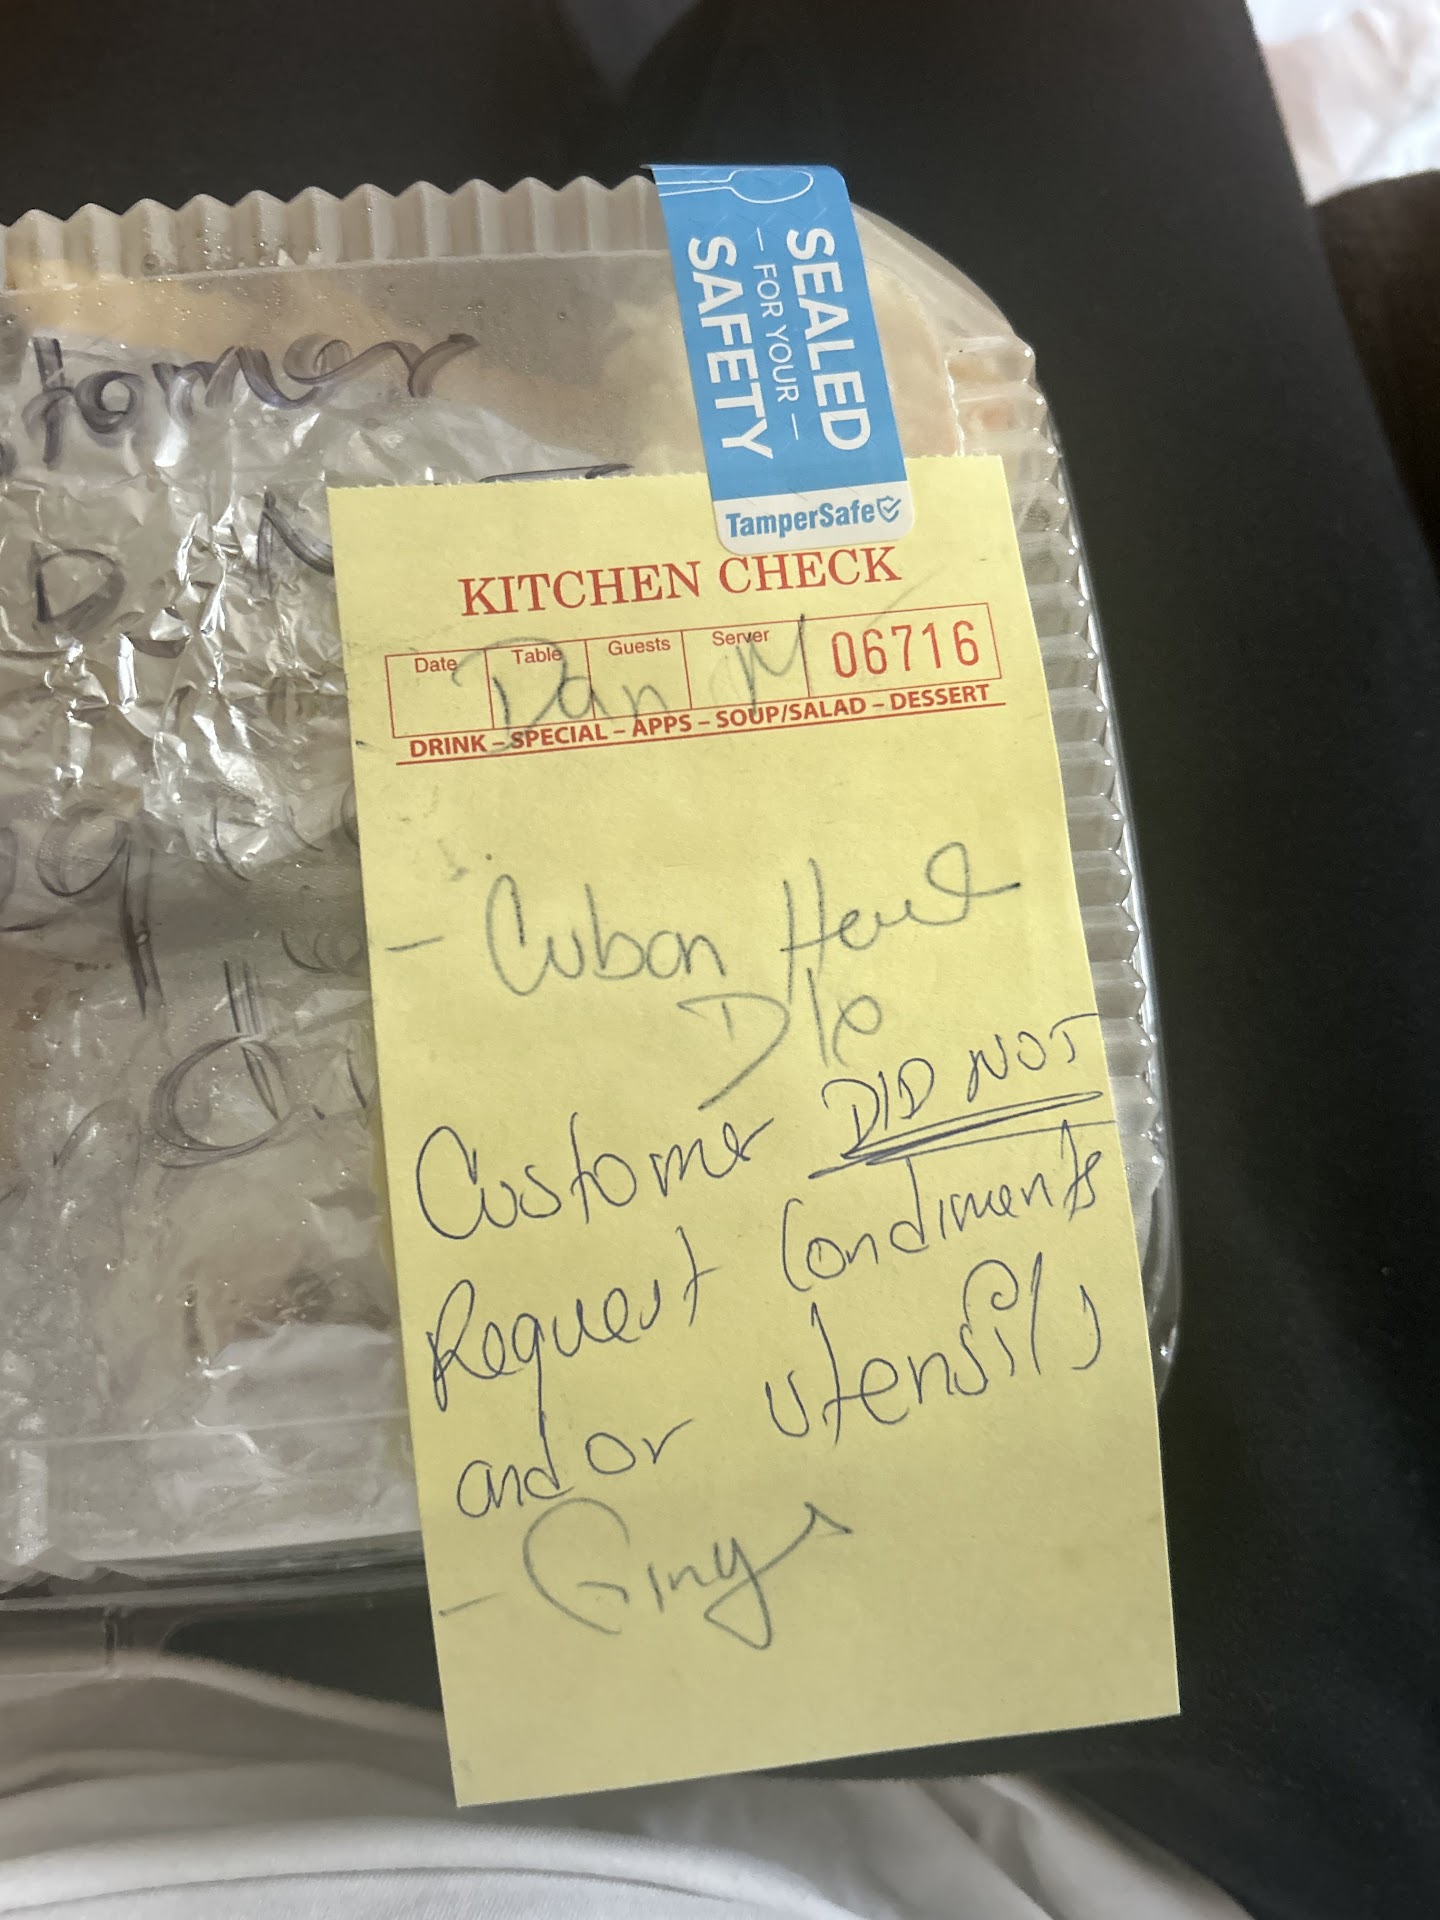 SEALED
– FOR YOUR –
SAFETY
TamperSafe
tomer
D N
KITCHEN CHECK
Date Table Guests Server 06716
Dan M
DRINK – SPECIAL – APPS – SOUP/SALAD – DESSERT
- Cuban
Customer DID NOT
Request Condiments
and or utensils